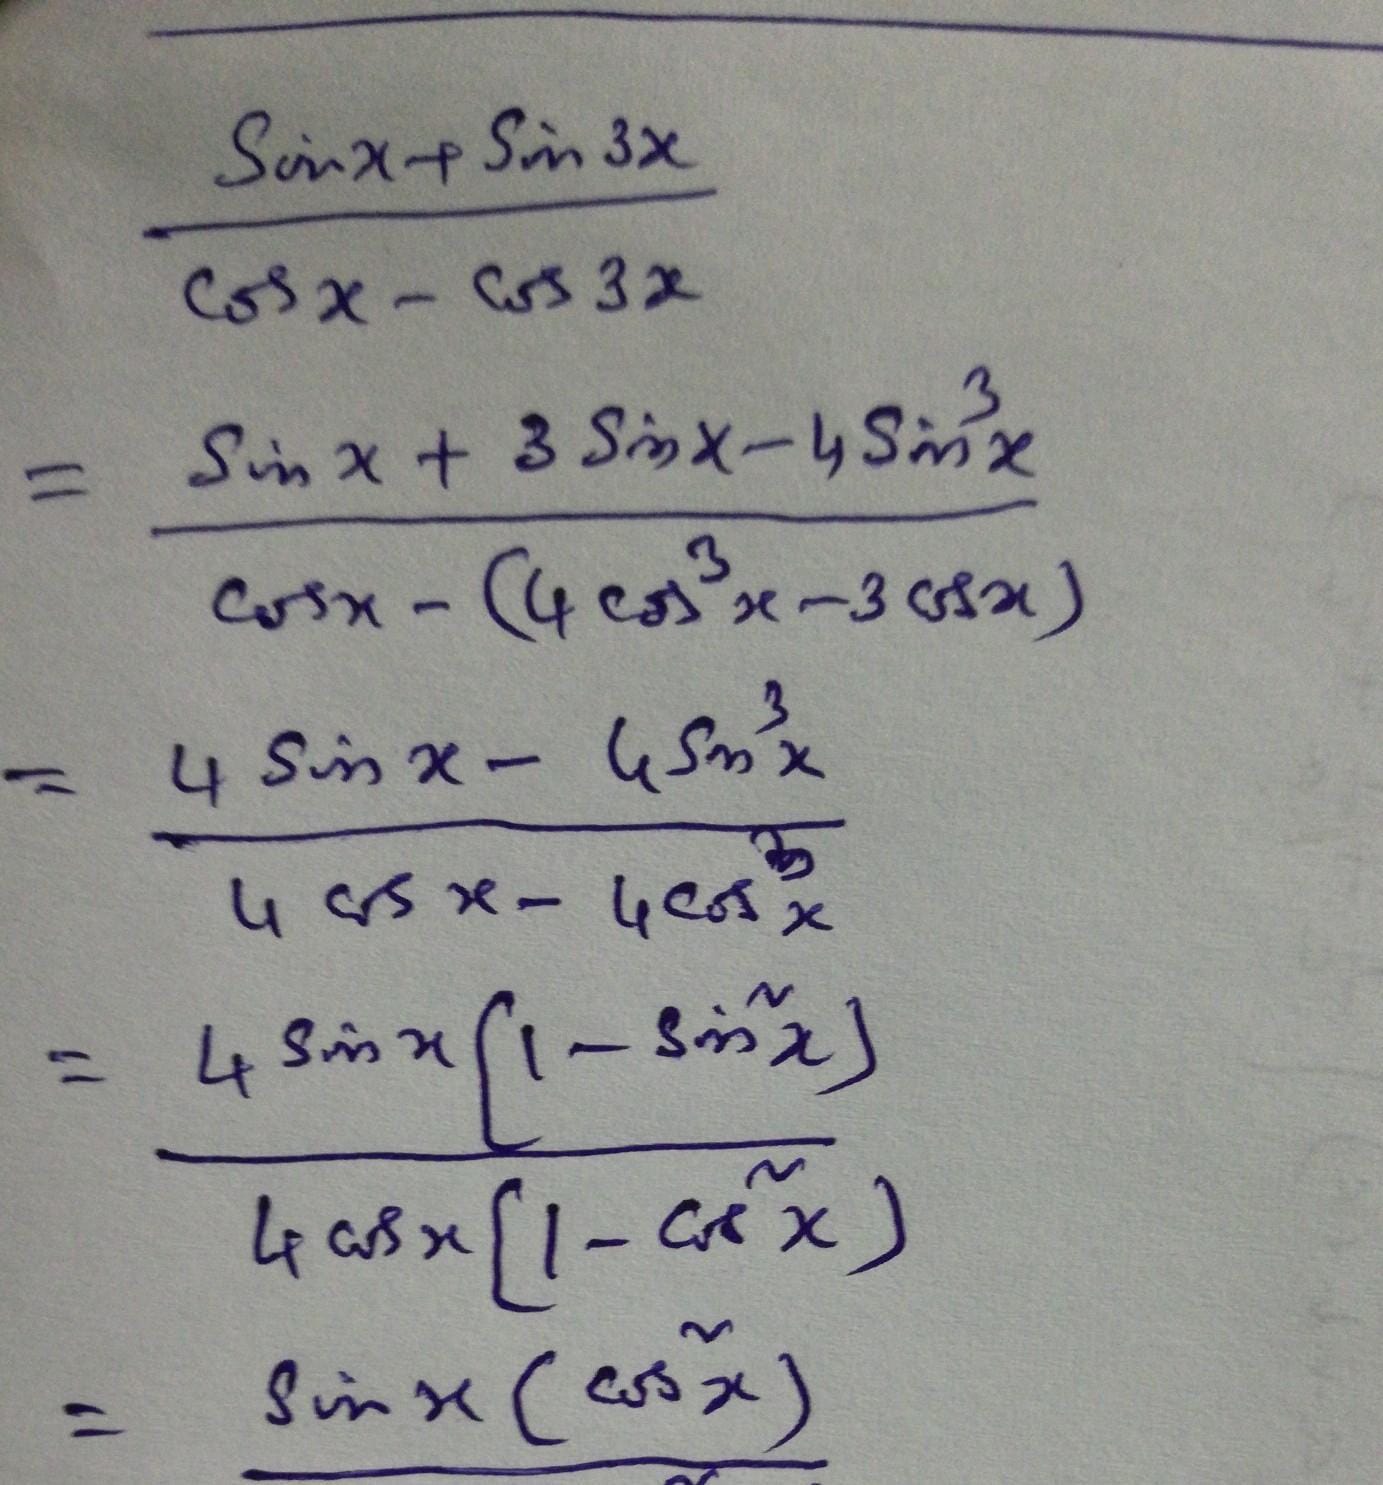 Sin x + Sin 3x
cos x - cos 3x
= Sin x + 3 Sin x - 4 Sin³x
cos x - (4 cos³x - 3 cos x)
= 4 Sin x - 4 Sin³x
4 cos x - 4 cos³x
= 4 Sin x (1 - Sin²x)
4 cos x (1 - cos²x)
= Sin x (cos²x)